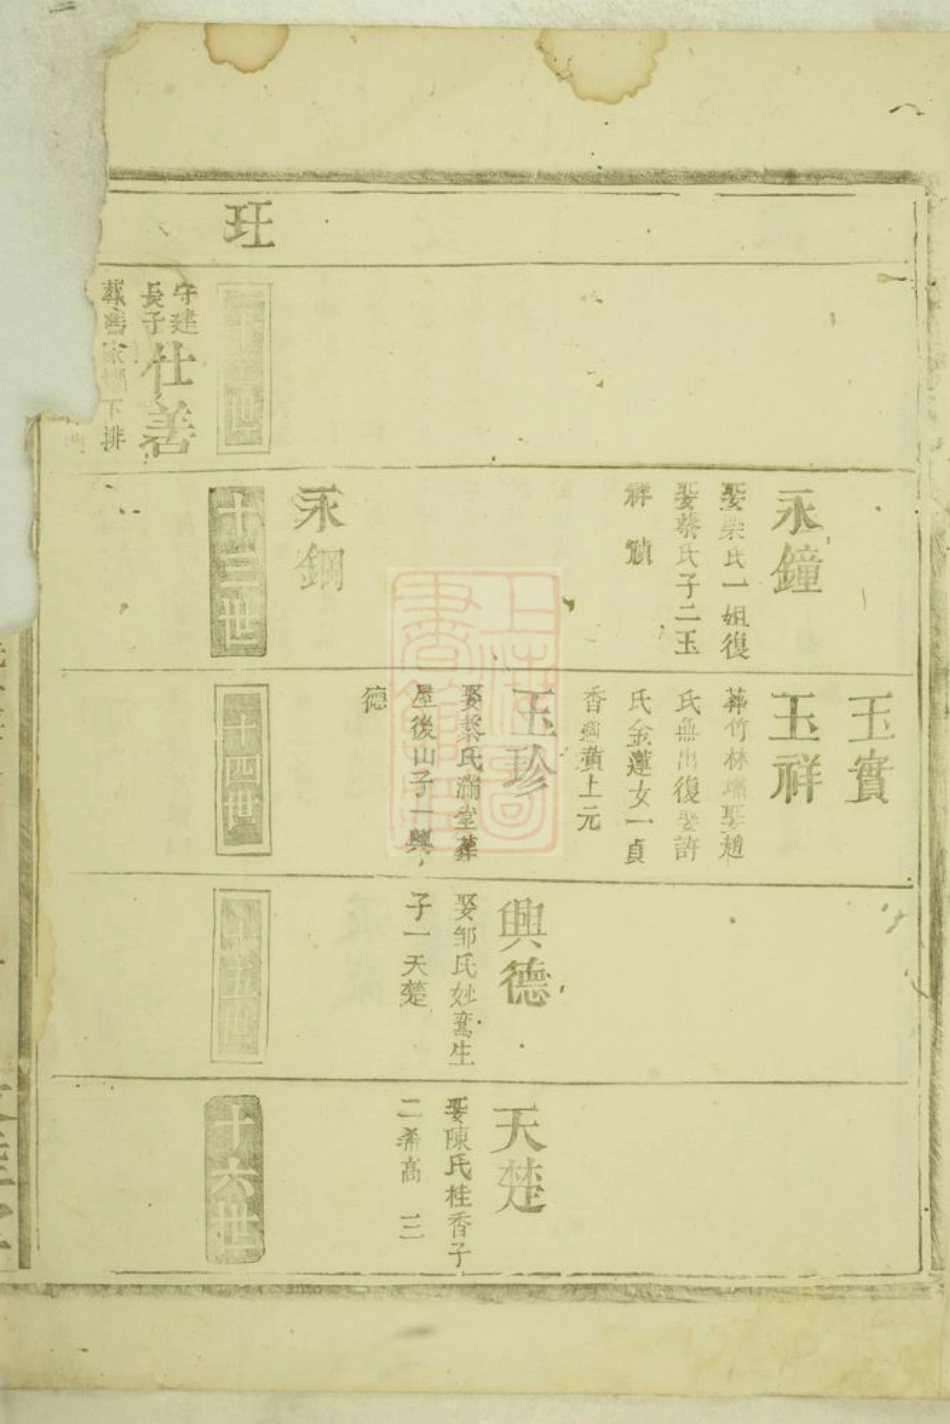 玉實
玉祥
葬竹林娶趙
氏無出復娶許
氏金蓮女一貞
香適黃上元
永鐘
娶樂氏一姐復
娶蔡氏子二玉
祥
玉珍
娶蔡氏滿堂葬
屋後山子一興
德
興德
娶邹氏妙鸞生
子一天楚
天楚
娶陳氏桂香子
二希高 三
永鋼
玨
十三世
十四世
十五世
十六世
守建
長子
仕善
下排
上海圖
書館藏